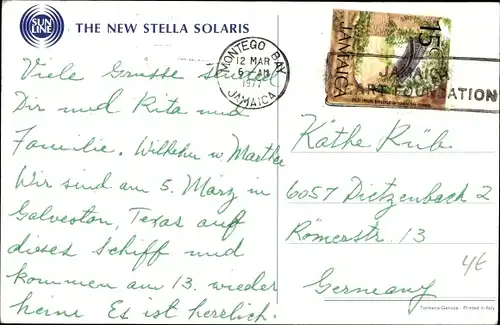 SUN LINE
THE NEW STELLA SOLARIS
MONTEGO BAY
12 MAR
1977
JAMAICA
15
JAMAICA
JAMAICA
ART FOUNDATION
Viele Grüsse sendet
Dir und Rita und
Familie. Wilhelm u Martha
Wir sind am 5. März in
Galveston, Texas auf
dieses Schiff und
kommen am 13. wieder
heim. Es ist herrlich.
Käthe Rüb
6057 Dietzenbach 2
Römerstr. 13
Germany
4€
Printed in Italy